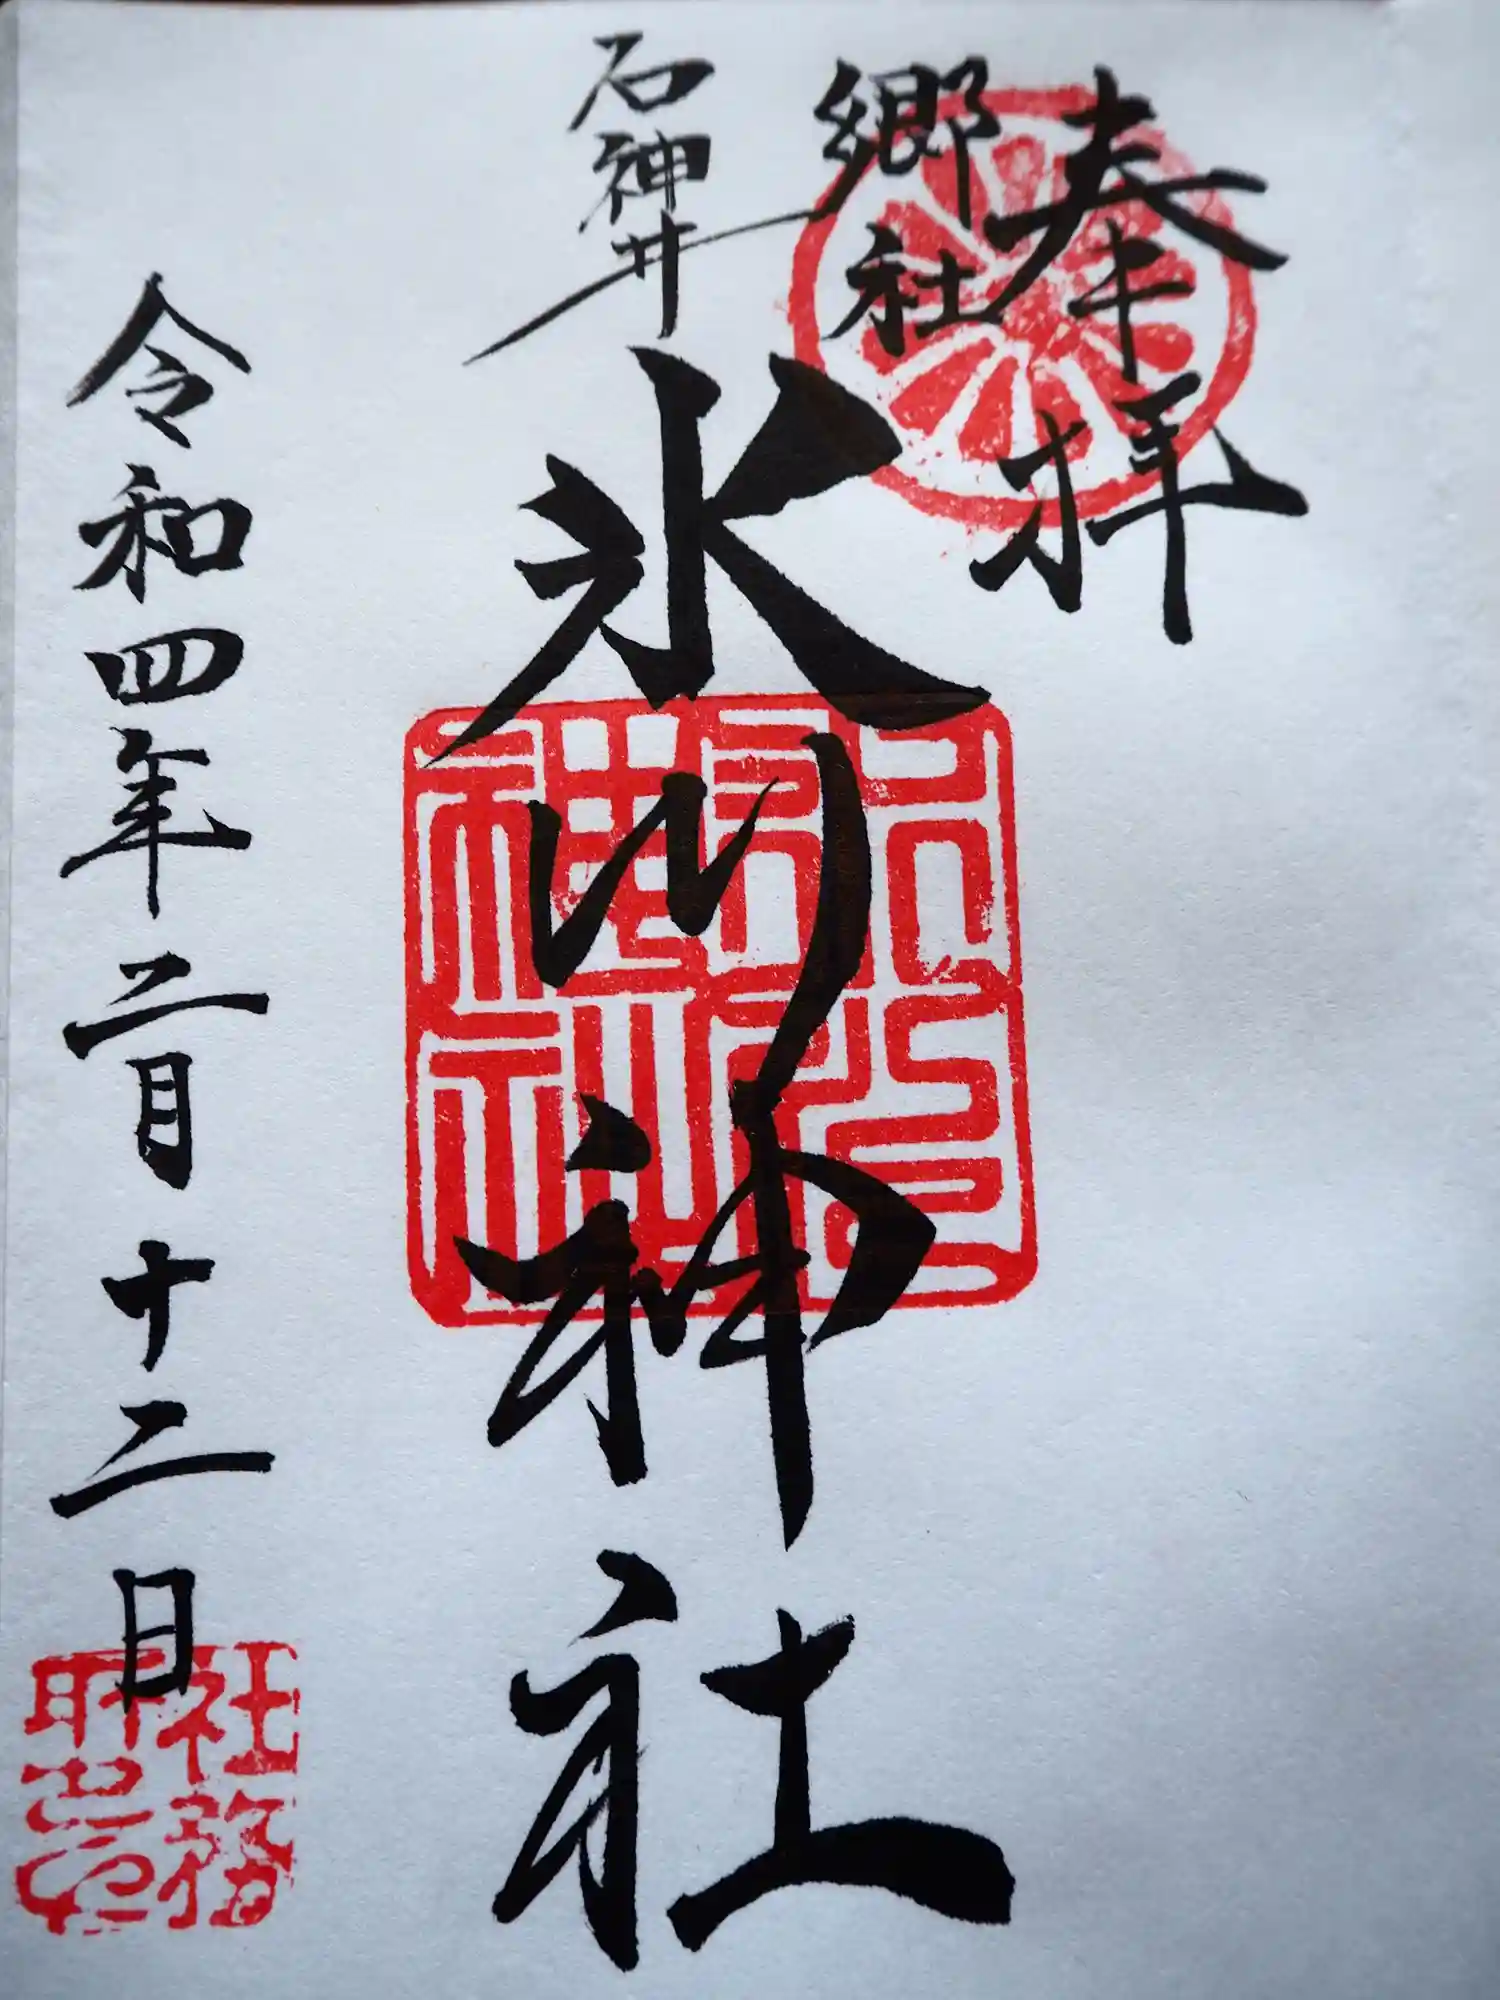 奉拝
郷社
石神井
氷川神社
令和四年二月十二日
社務
所之印